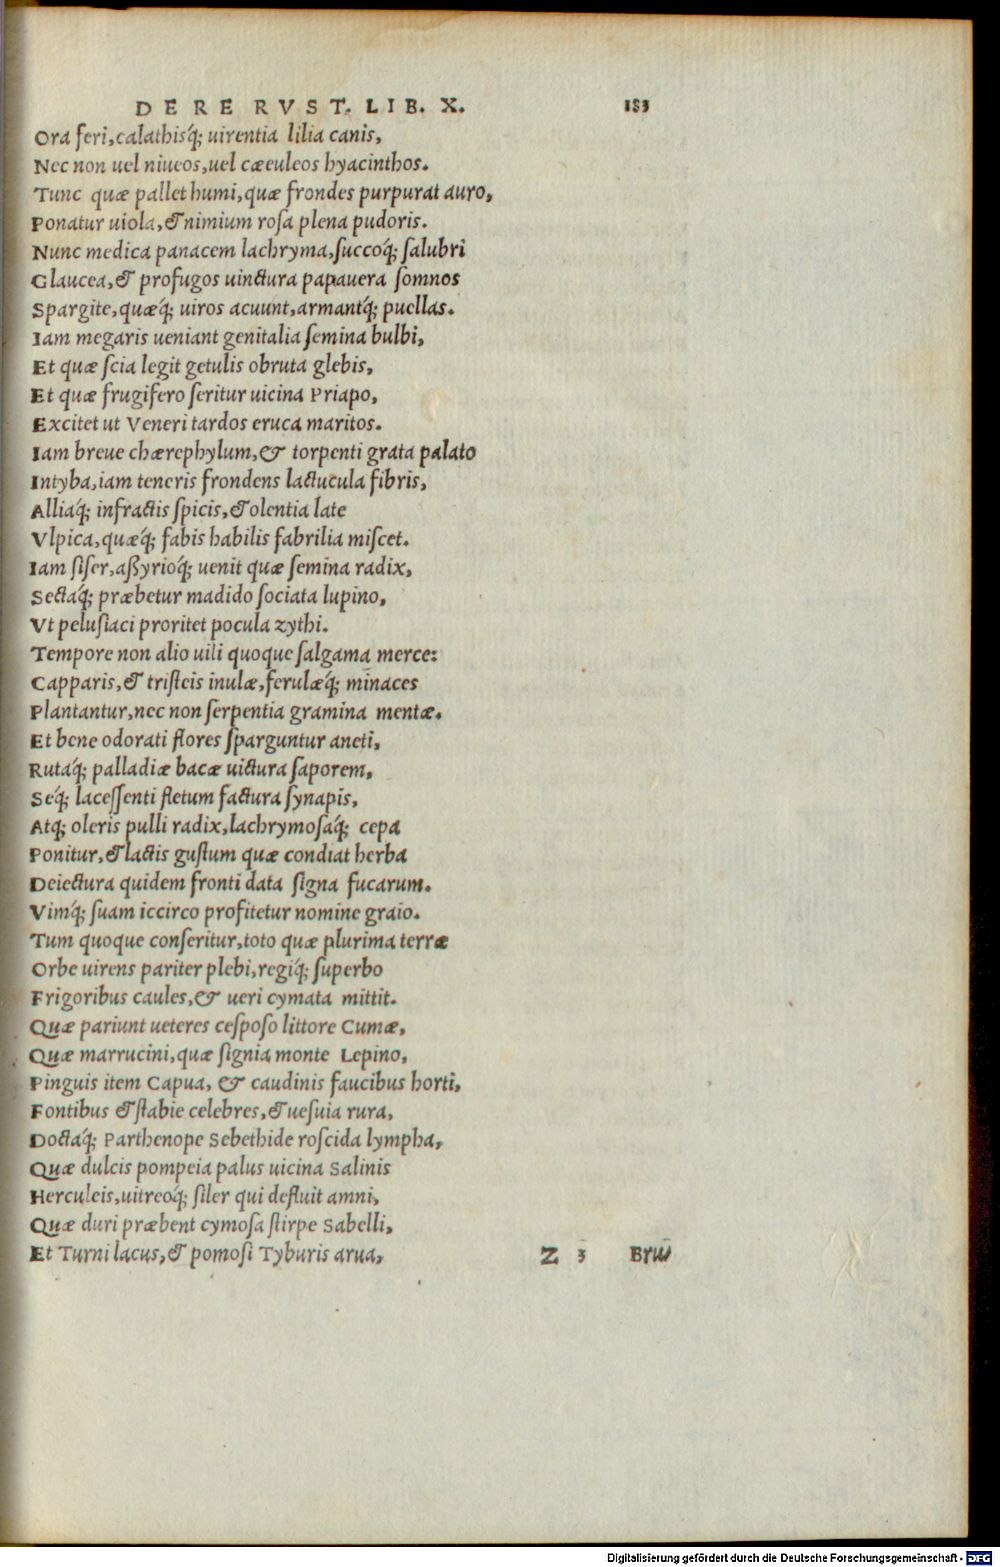 DE RE RVST. LIB. X. 183
Ora feri, calathisq́; uirentia lilia canis,
Nec non uel niueos, uel cæeuleos hyacinthos.
Tunc quæ pallet humi, quæ frondes purpurat auro,
Ponatur uiola, & nimium rosa plena pudoris.
Nunc medica panacem lachryma, succoq́; salubri
Glaucea, & profugos uinctura papauera somnos
Spargite, quæq́; uiros acuunt, armantq́; puellas.
Iam megaris ueniant genitalia semina bulbi,
Et quæ scia legit getulis obruta glebis,
Et quæ frugifero seritur uicina Priapo,
Excitet ut Veneri tardos eruca maritos.
Iam breue chærephylum, & torpenti grata palato
Intyba, iam teneris frondens lactucula fibris,
Alliaq́; infractis spicis, & olentia late
Vlpica, quæq́; fabis habilis fabrilia miscet.
Iam siser, aßyrioq́; uenit quæ semina radix,
Sectaq́; præbetur madido sociata lupino,
Vt pelusiaci proritet pocula zythi.
Tempore non alio uili quoque salgama merce:
Capparis, & tristeis inulæ, ferulæq́; minaces
Plantantur, nec non serpentia gramina mentæ.
Et bene odorati flores sparguntur aneti,
Rutaq́; palladiæ bacæ uictura saporem,
Seq́; lacessenti fletum factura synapis,
Atq; oleris pulli radix, lachrymosaq́; cepa
Ponitur, & lactis gustum quæ condiat herba
Deiectura quidem fronti data signa fucarum.
Vimq́; suam iccirco profitetur nomine graio.
Tum quoque conseritur, toto quæ plurima terræ
Orbe uirens pariter plebi, regiq́; superbo
Frigoribus caules, & ueri cymata mittit.
Quæ pariunt ueteres cesposo littore Cumæ,
Quæ marrucini, quæ signia monte Lepino,
Pinguis item Capua, & caudinis faucibus horti,
Fontibus & stabie celebres, & uesuia rura,
Doctaq́; Parthenope Sebethide roscida lympha,
Quæ dulcis pompeia palus uicina Salinis
Herculeis, uitreoq́; siler qui defluit amni,
Quæ duri præbent cymosa stirpe Sabelli,
Et Turni lacus, & pomosi Tyburis arua,
Z 3 Bru
Digitalisierung gefördert durch die Deutsche Forschungsgemeinschaft - DFG